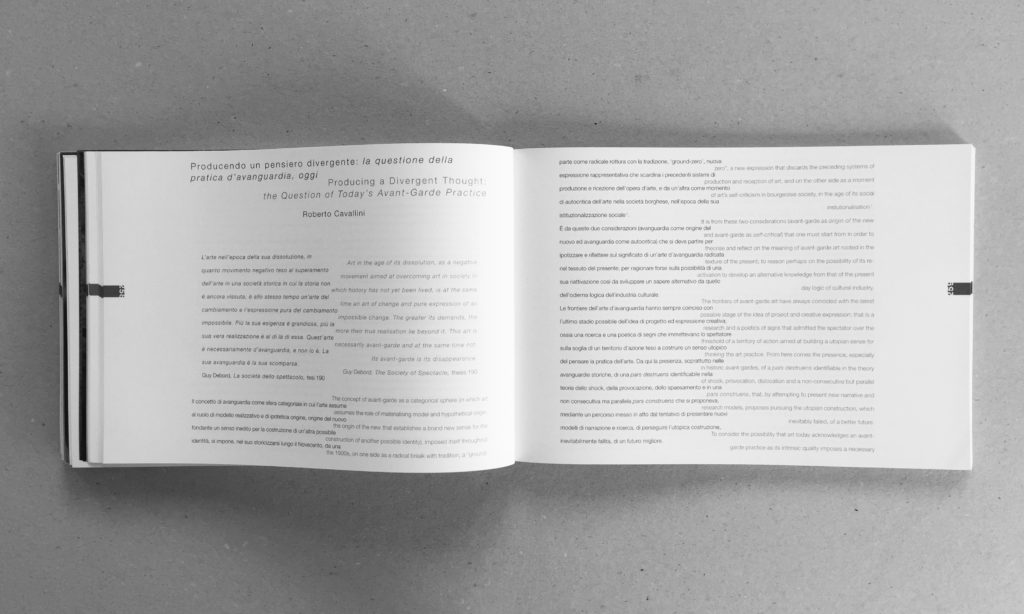 Producendo un pensiero divergente: la questione della
pratica d'avanguardia, oggi
Producing a Divergent Thought:
the Question of Today's Avant-Garde Practice
Roberto Cavallini
L'arte nell'epoca della sua dissoluzione, in
quanto movimento negativo teso al superamento
dell'arte in una società storica in cui la storia non
è ancora vissuta, è allo stesso tempo un'arte del
cambiamento e l'espressione pura del cambiamento
impossibile. Più la sua esigenza è grandiosa, più la
sua vera realizzazione è al di là di essa. Quest'arte
è necessariamente d'avanguardia, e non lo è. La
sua avanguardia è la sua scomparsa.
Guy Debord, La società dello spettacolo, tesi 190
Art in the age of its dissolution, as a negative
movement aimed at overcoming art in society in
which history has not yet been lived, is at the same
time an art of change and pure expression of an
impossible change. The greater its demands, the
more then true realisation lie beyond it. This art is
necessarily avant-garde and at the same time not.
Its avant-garde is its disappearance.
Guy Debord, The Society of Spectacle, theses 190
Il concetto di avanguardia come sfera categoriale in cui l'arte assume
al ruolo di modello realizzativo e di ipotetica origine, origine del nuovo
fondante un senso inedito per la costruzione di un'altra possibile
identità, si impone, nel suo storicizzarsi lungo il Novecento, da una
The concept of avant-garde as a categorical sphere (in which art
assumes the role of materialising model and hypothetical origin
the origin of the new that establishes a brand new sense for the
construction of another possible identity), imposed itself throughout
the 1900s, on one side as a radical break with tradition, a "ground
parte come radicale rottura con la tradizione, 'ground-zero', nuova
espressione rappresentativa che scardina i precedenti sistemi di
produzione e ricezione dell'opera d'arte, e da un'altra come momento
di autocritica dell'arte nella società borghese, nell'epoca della sua
istituzionalizzazione sociale¹.
È da queste due considerazioni (avanguardia come origine del
nuovo ed avanguardia come autocritica) che si deve partire per
ipotizzare e riflettere sul significato di un'arte d'avanguardia radicata
nel tessuto del presente, per ragionare forse sulla possibilità di una
sua riattivazione così da sviluppare un sapere alternativo da quello
dell'odierna logica dell'industria culturale.
Le frontiere dell'arte d'avanguardia hanno sempre coinciso con
l'ultimo stadio possibile dell'idea di progetto ed espressione creativa,
ossia una ricerca e una poetica di segni che immettevano lo spettatore
sulla soglia di un territorio d'azione teso a costruire un senso utopico
del pensare la pratica dell'arte. Da qui la presenza, soprattutto nelle
avanguardie storiche, di una pars destruens identificabile nella
teoria dello shock, della provocazione, dello spaesamento e in una
non consecutiva ma parallela pars construens che si proponeva,
mediante un percorso messo in atto dal tentativo di presentare nuovi
modelli di narrazione e ricerca, di perseguire l'utopica costruzione,
inevitabilmente fallita, di un futuro migliore.
zero", a new expression that discards the preceding systems of
production and reception of art, and on the other side as a moment
of art's self-criticism in bourgeois society, in the age of its social
institutionalisation¹.
It is from these two considerations (avant-garde as origin of the new
and avant-garde as self-critical) that one must start from in order to
theorise and reflect on the meaning of avant-garde art rooted in the
texture of the present, to reason perhaps on the possibility of its re-
activation to develop an alternative knowledge from that of the present
day logic of cultural industry.
The frontiers of avant-garde art have always coincided with the latest
possible stage of the idea of project and creative expression: that is a
research and a poetics of signs that admitted the spectator over the
threshold of a territory of action aimed at building a utopian sense for
thinking the art practice. From here comes the presence, especially
in historic avant-gardes, of a pars destruens identifiable in the theory
of shock, provocation, dislocation and a non-consecutive but parallel
pars construens, that, by attempting to present new narrative and
research models, proposes pursuing the utopian construction, which
inevitably failed, of a better future.
To consider the possibility that art today acknowledges an avant-
garde practice as its intrinsic quality imposes a necessary